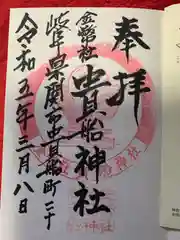 奉拝
金幣社
貴船神社
岐阜県関市貴船町二十
令和五年三月八日